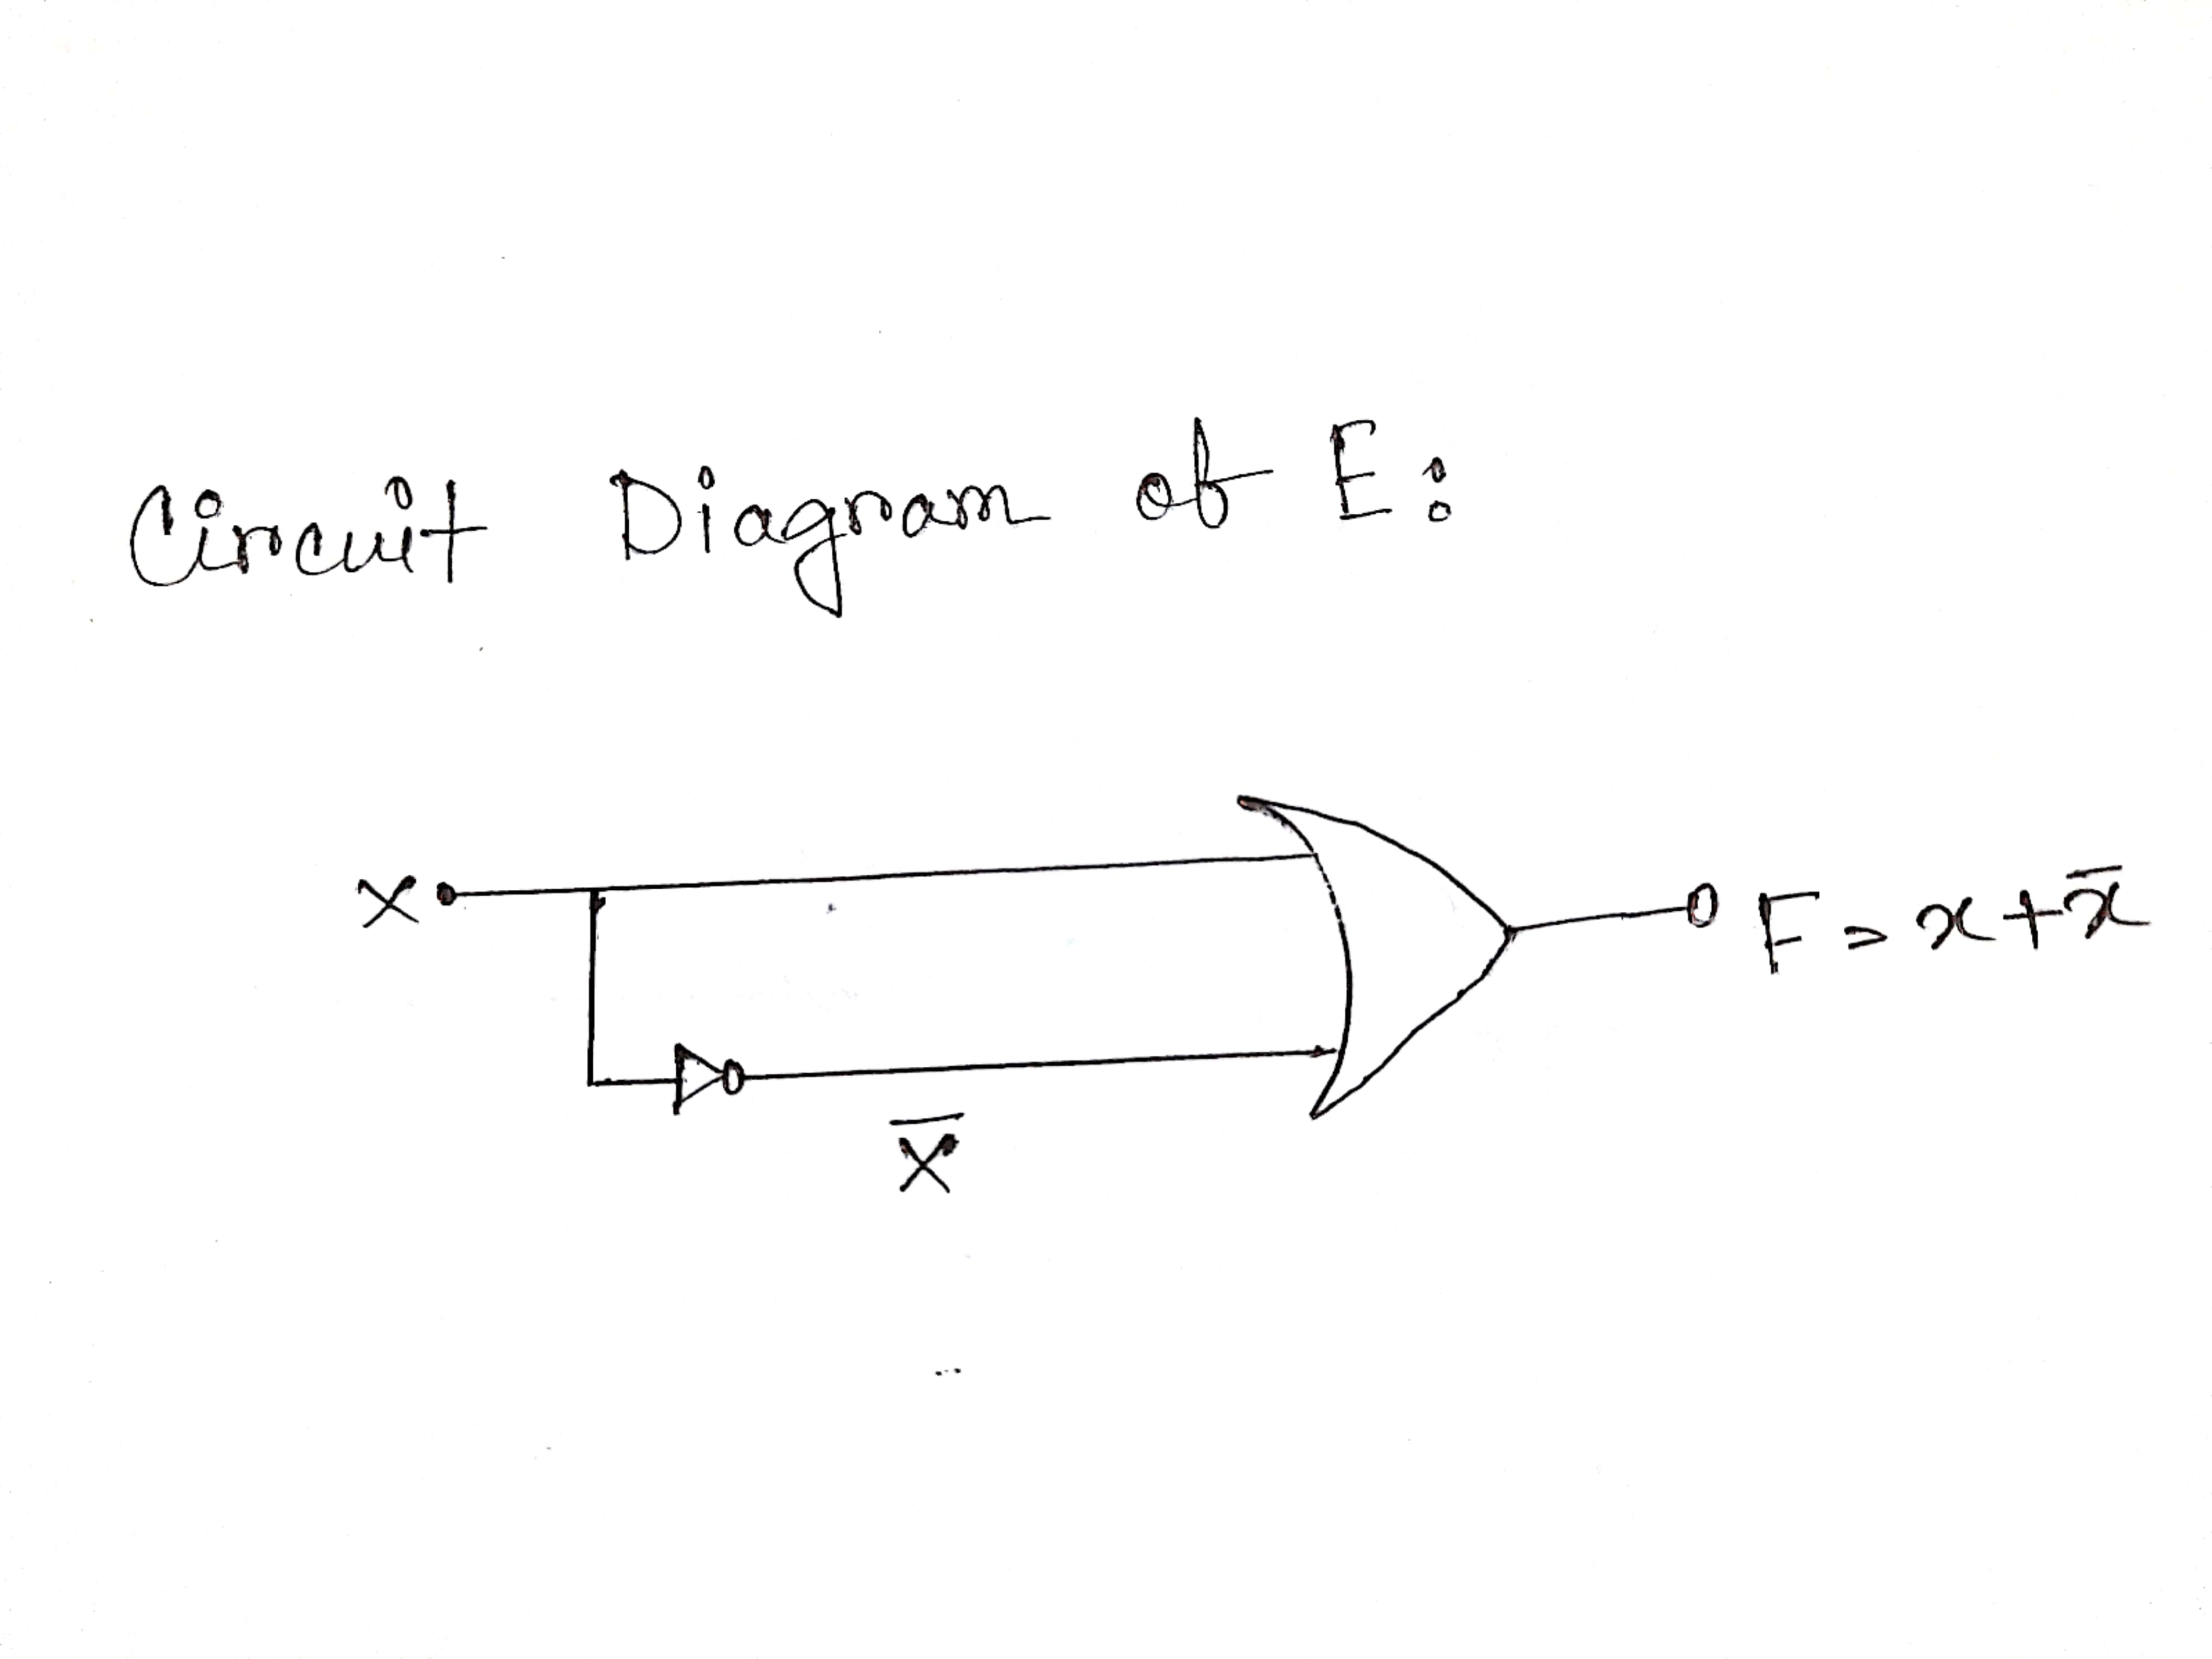 Circuit Diagram of E:
X
F = x + x̅
X̅